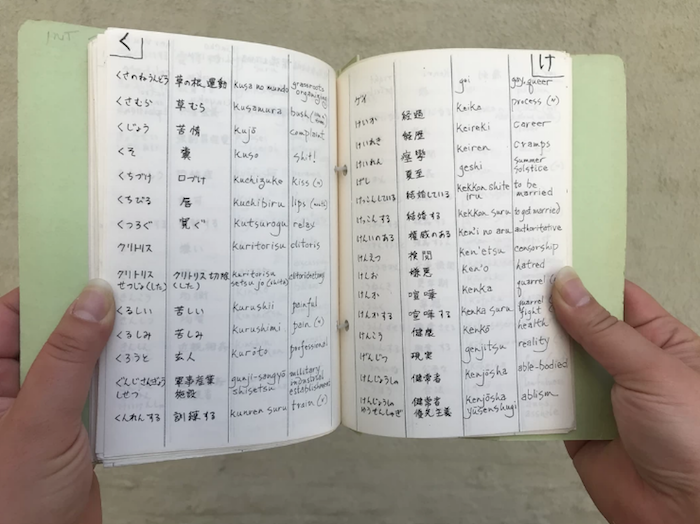 く
くさのねうんどう 草の根運動 kusa no mundo grassroots organizing
くさむら 草むら kusamura bush
くじょう 苦情 kujō complaint
くそ 糞 kuso shit!
くちづけ 口づけ kuchizuke kiss (n)
くちびる 唇 kuchibiru lips
くつろぐ 寛ぐ kutsurogu relax
クリトリス kuritorisu clitoris
クリトリスせつじょ(した) クリトリス切除(した) kuritorisu setsujo (shita)
くるしい 苦しい kurushii painful
くるしみ 苦しみ kurushimi pain (n)
くろうと 玄人 kurōto professional
ぐんじさんぎょうしせつ 軍事産業施設 gunji-sangyō shisetsu military industrial establishment
くんれんする 訓練する kunren suru train (v)
け
ゲイ gei gay, queer
けいか 経過 keika process (n)
けいれき 経歴 keireki career
けいれん 痙攣 keiren cramps
げし 夏至 geshi summer solstice
けっこんしている 結婚している kekkon shite iru to be married
けっこんする 結婚する kekkon suru to get married
けんいのある 権威のある ken'i no aru authoritative
けんえつ 検閲 ken'etsu censorship
けんお 嫌悪 ken'o hatred
けんか 喧嘩 kenka quarrel (n)
けんかする 喧嘩する kenka suru quarrel fight
けんこう 健康 kenkō health
げんじつ 現実 genjitsu reality
けんじょうしゃ 健常者 kenjōsha able-bodied
けんじょうしゃゆうせんしゅぎ 健常者優先主義 Kenjōsha yūsenshugi ablism